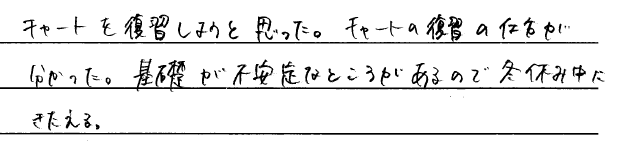 チャートを復習しようと思った。チャートの復習の仕方が
分かった。基礎が不安定なところがあるので冬休み中に
きたえる。